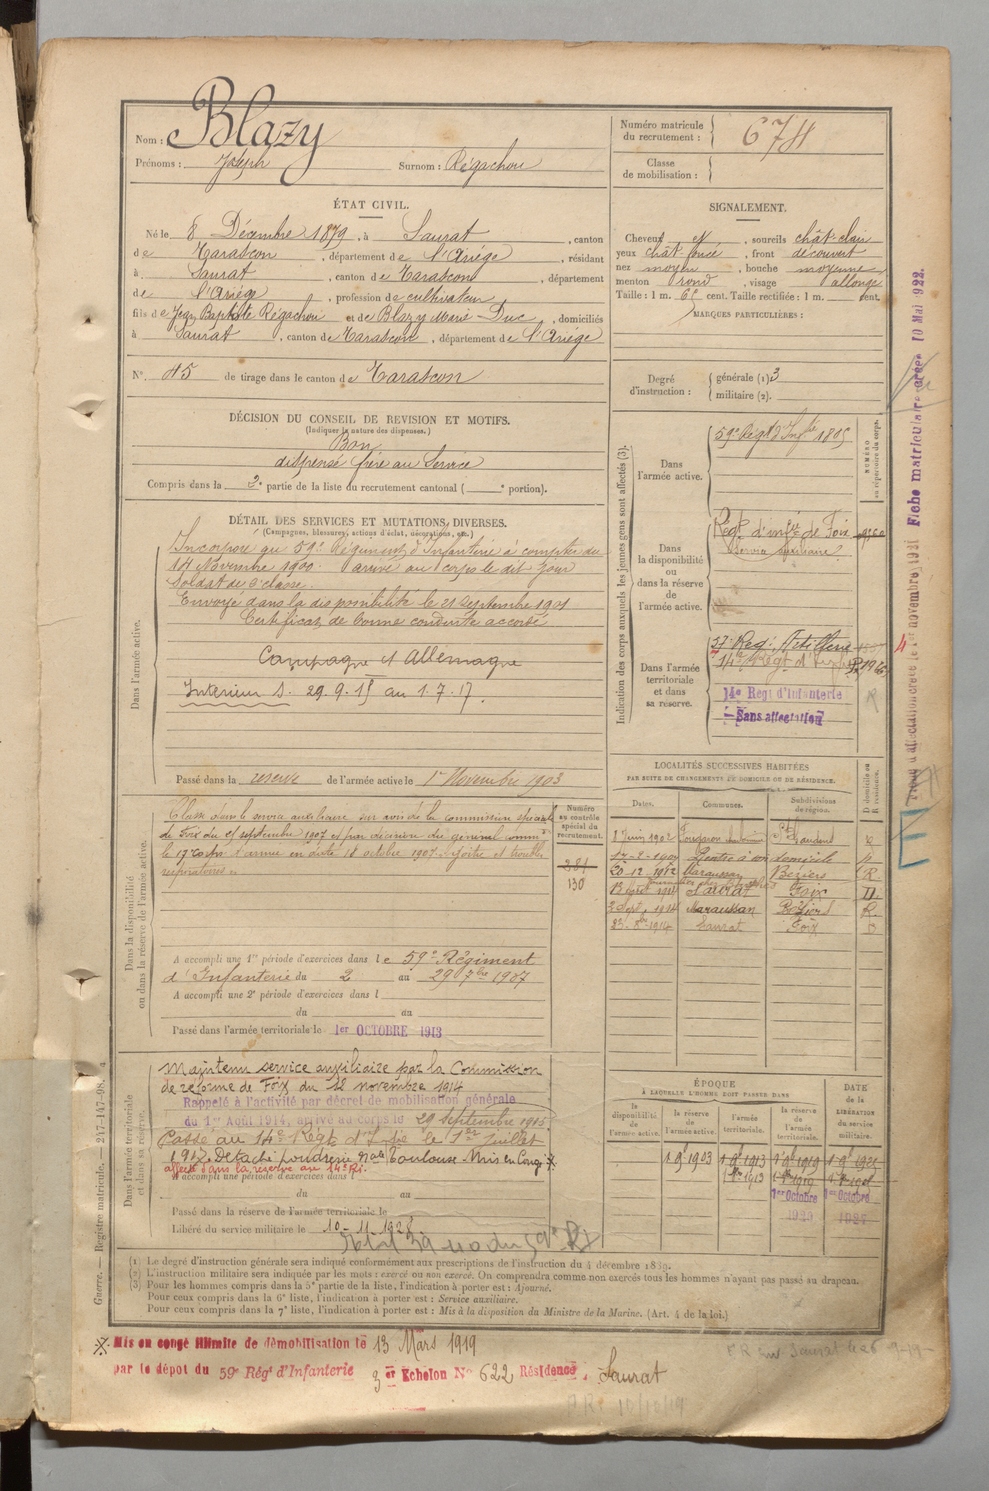 Nom : Blazy
Prénoms : Joseph Surnom : Régachou
Numéro matricule du recrutement : 674
Classe de mobilisation :
ÉTAT CIVIL.
Né le 8 Décembre 1879, à Saurat, canton
de Tarascon, département de l'Ariège, résidant
à Saurat, canton de Tarascon, département
de l'Ariège, profession de cultivateur
fils de Jean Baptiste Régachou et de Blazy Marie Duc, domiciliés
à Saurat, canton de Tarascon, département de l'Ariège
N° 45 de tirage dans le canton de Tarascon
SIGNALEMENT.
Cheveux et, sourcils chât-clair
yeux chât-foncé, front découvert
nez moyen, bouche moyenne
menton rond, visage allongé
Taille : 1 m. cent. Taille rectifiée : 1 m. cent.
MARQUES PARTICULIÈRES :
Degré d'instruction :
générale (1) 3
militaire (2).
DÉCISION DU CONSEIL DE REVISION ET MOTIFS.
(Indiquer la nature des dispenses.)
Bon
dispensé frère au Service
Compris dans la 2e partie de la liste du recrutement cantonal ( e portion).
DÉTAIL DES SERVICES ET MUTATIONS DIVERSES.
(Campagnes, blessures, actions d'éclat, décorations, etc.)
Dans l'armée active.
Incorporé au 59e Régiment d'Infanterie à compter du
14 Novembre 1900. arrivé au corps le dit jour
Soldat de 2e classe.
Envoyé dans la disponibilité le 21 Septembre 1901
Certificat de bonne conduite accordé
Campagne ct Allemagne
Intérieur S. 29.9.15 au 1.7.17.
Passé dans la reserve de l'armée active le 1er Novembre 1903
Indication des corps auxquels les jeunes gens sont affectés (3).
NUMÉRO au répertoire du corps.
Dans l'armée active.
59e Régt d'Infrie 1805
Dans la disponibilité ou dans la réserve de l'armée active.
Régt d'infie de Foix
Service auxiliaire
Dans l'armée territoriale et dans sa réserve.
14e Regt d'Infanterie
Sans affectation
Dans la disponibilité ou dans la réserve de l'armée active.
Classé dans le service auxiliaire sur avis de la commission spéciale
de Foix du septembre 1907 et par décision du général commt
le 17e Corps d'armée en date 18 octobre 1907
respiratoires
Numéro au contrôle spécial du recrutement.
281
130
A accompli une 1re période d'exercices dans le 59e Régiment
d'Infanterie du 2 au 29 7bre 1907
A accompli une 2e période d'exercices dans l
du au
Passé dans l'armée territoriale le 1er OCTOBRE 1913
LOCALITÉS SUCCESSIVES HABITÉES
PAR SUITE DE CHANGEMENTS DE DOMICILE OU DE RÉSIDENCE.
Dates. Communes. Subdivisions de région. D domicile ou R résidence.
1 Juin 1902 St Gaudens
Rentré à son domicile
20-12-1912 Maraussan Béziers R.
Saurat Foix D.
2 Sept. 1914 Maraussan Béziers R.
1914 Saurat Foix D
Dans l'armée territoriale et dans sa réserve.
Maintenu service auxiliaire par la Commission
de réforme de Foix du 12 novembre 1914
Rappelé à l'activité par décret de mobilisation générale
du 1er Août 1914, arrivé au corps le 29 septembre 1915
Passé au 14e Régt d'Infie le 1er Juillet
1917. Détaché poudrerie Nale Toulouse Mis en Congé
affecté dans la réserve au 14e Ri.
A accompli une période d'exercices dans l
du au
Passé dans la réserve de l'armée territoriale le
Libéré du service militaire le 10-11-1928
ÉPOQUE
À LAQUELLE L'HOMME DOIT PASSER DANS
DATE DE LA LIBÉRATION DU SERVICE MILITAIRE.
la disponibilité de l'armée active. la réserve de l'armée active. l'armée territoriale. la réserve de l'armée territoriale.
1 9 1903 1 9 1913
1er Octobre 1er Octobre
(1) Le degré d'instruction générale sera indiqué conformément aux prescriptions de l'instruction du 4 décembre 1889.
(2) L'instruction militaire sera indiquée par les mots : exercé ou non exercé. On comprendra comme non exercés tous les hommes n'ayant pas passé au drapeau.
(3) Pour les hommes compris dans la 5e partie de la liste, l'indication à porter est : Ajourné.
Pour ceux compris dans la 6e liste, l'indication à porter est : Service auxiliaire.
Pour ceux compris dans la 7e liste, l'indication à porter est : Mis à la disposition du Ministre de la Marine. (Art. 4 de la loi.)
Guerre. — Registre matricule. — 247-147-98.
Mis en congé illimité de démobilisation le 13 Mars 1919
par le dépôt du 59e Régt d'Infanterie 3er Echelon N° 622 Résidence : Saurat
Fiche matriculaire créée 10 Mai 1922.